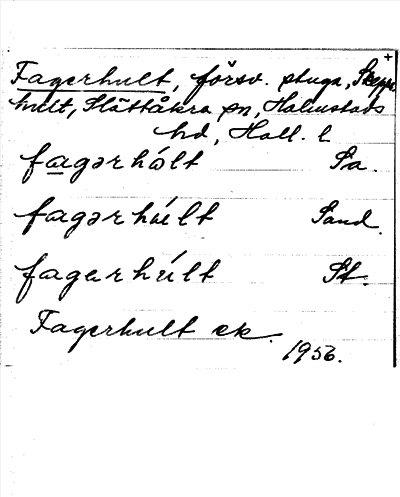 +
Fagerhult, försv. stuga, Skepps
hult, Slättåkra sn, Halmstads
hd, Hall. l
fagərhólt Sa.
fagərhúlt Sand.
fagarhúlt St.
Fagerhult ek.
1956.